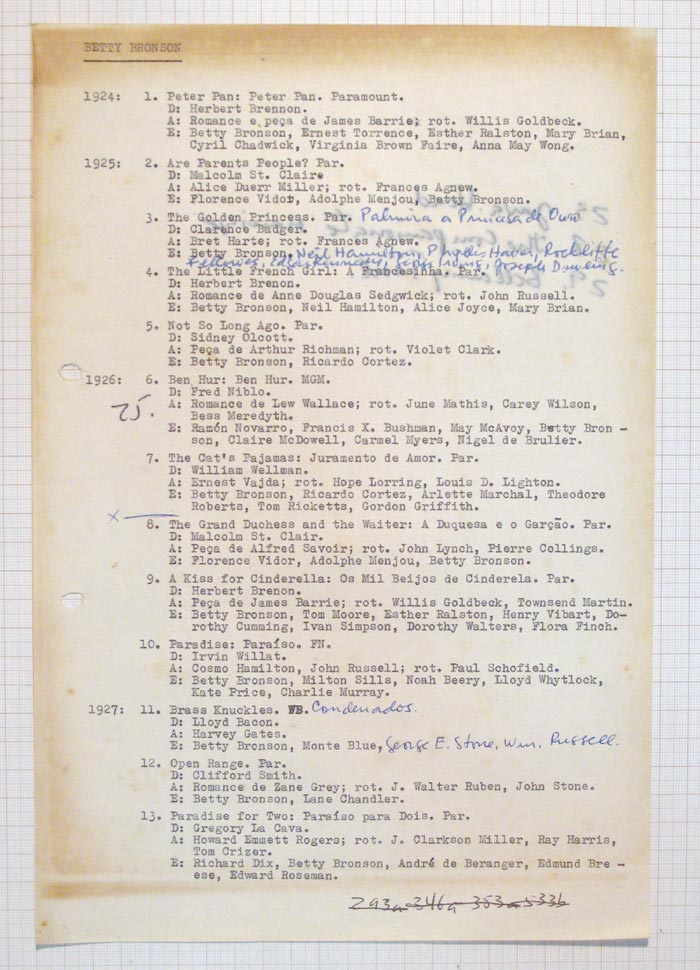 BETTY BRONSON
1924: 1. Peter Pan: Peter Pan. Paramount.
D: Herbert Brennon.
A: Romance e peça de James Barrie; rot. Willis Goldbeck.
E: Betty Bronson, Ernest Torrence, Esther Ralston, Mary Brian,
Cyril Chadwick, Virginia Brown Faire, Anna May Wong.
1925: 2. Are Parents People? Par.
D: Malcolm St. Claire
A: Alice Duerr Miller; rot. Frances Agnew.
E: Florence Vidor, Adolphe Menjou, Betty Bronson.
3. The Golden Princess. Par. Palmira a Princesa de Ouro
D: Clarence Badger.
A: Bret Harte; rot. Frances Agnew.
E: Betty Bronson, Neil Hamilton, Phyllis Haver, Rockliffe
Fellowes, Edgar Kennedy, George Irving, Joseph Dowling.
4. The Little French Girl: A Francesinha. Par.
D: Herbert Brenon.
A: Romance de Anne Douglas Sedgwick; rot. John Russell.
E: Betty Bronson, Neil Hamilton, Alice Joyce, Mary Brian.
5. Not So Long Ago. Par.
D: Sidney Olcott.
A: Peça de Arthur Richman; rot. Violet Clark.
E: Betty Bronson, Ricardo Cortez.
1926: 6. Ben Hur: Ben Hur. MGM.
D: Fred Niblo.
25. A: Romance de Lew Wallace; rot. June Mathis, Carey Wilson,
Bess Meredyth.
E: Ramón Novarro, Francis X. Bushman, May McAvoy, Betty Bron -
son, Claire McDowell, Carmel Myers, Nigel de Brulier.
7. The Cat's Pajamas: Juramento de Amor. Par.
D: William Wellman.
A: Ernest Vajda; rot. Hope Lorring, Louis D. Lighton.
E: Betty Bronson, Ricardo Cortez, Arlette Marchal, Theodore
Roberts, Tom Ricketts, Gordon Griffith.
x
8. The Grand Duchess and the Waiter: A Duquesa e o Garção. Par.
D: Malcolm St. Clair.
A: Peça de Alfred Savoir; rot. John Lynch, Pierre Collings.
E: Florence Vidor, Adolphe Menjou, Betty Bronson.
9. A Kiss for Cinderella: Os Mil Beijos de Cinderela. Par.
D: Herbert Brenon.
A: Peça de James Barrie; rot. Willis Goldbeck, Townsend Martin.
E: Betty Bronson, Tom Moore, Esther Ralston, Henry Vibart, Do-
rothy Cumming, Ivan Simpson, Dorothy Walters, Flora Finch.
10. Paradise: Paraíso. FN.
D: Irvin Willat.
A: Cosmo Hamilton, John Russell; rot. Paul Schofield.
E: Betty Bronson, Milton Sills, Noah Beery, Lloyd Whytlock,
Kate Price, Charlie Murray.
1927: 11. Brass Knuckles. WB. Condenados.
D: Lloyd Bacon.
A: Harvey Gates.
E: Betty Bronson, Monte Blue, George E. Stone, Wm. Russell.
12. Open Range. Par.
D: Clifford Smith.
A: Romance de Zane Grey; rot. J. Walter Ruben, John Stone.
E: Betty Bronson, Lane Chandler.
13. Paradise for Two: Paraíso para Dois. Par.
D: Gregory La Cava.
A: Howard Emmett Rogers; rot. J. Clarkson Miller, Ray Harris,
Tom Crizer.
E: Richard Dix, Betty Bronson, André de Beranger, Edmund Bre -
ese, Edward Roseman.
293a 346a 353a 533b